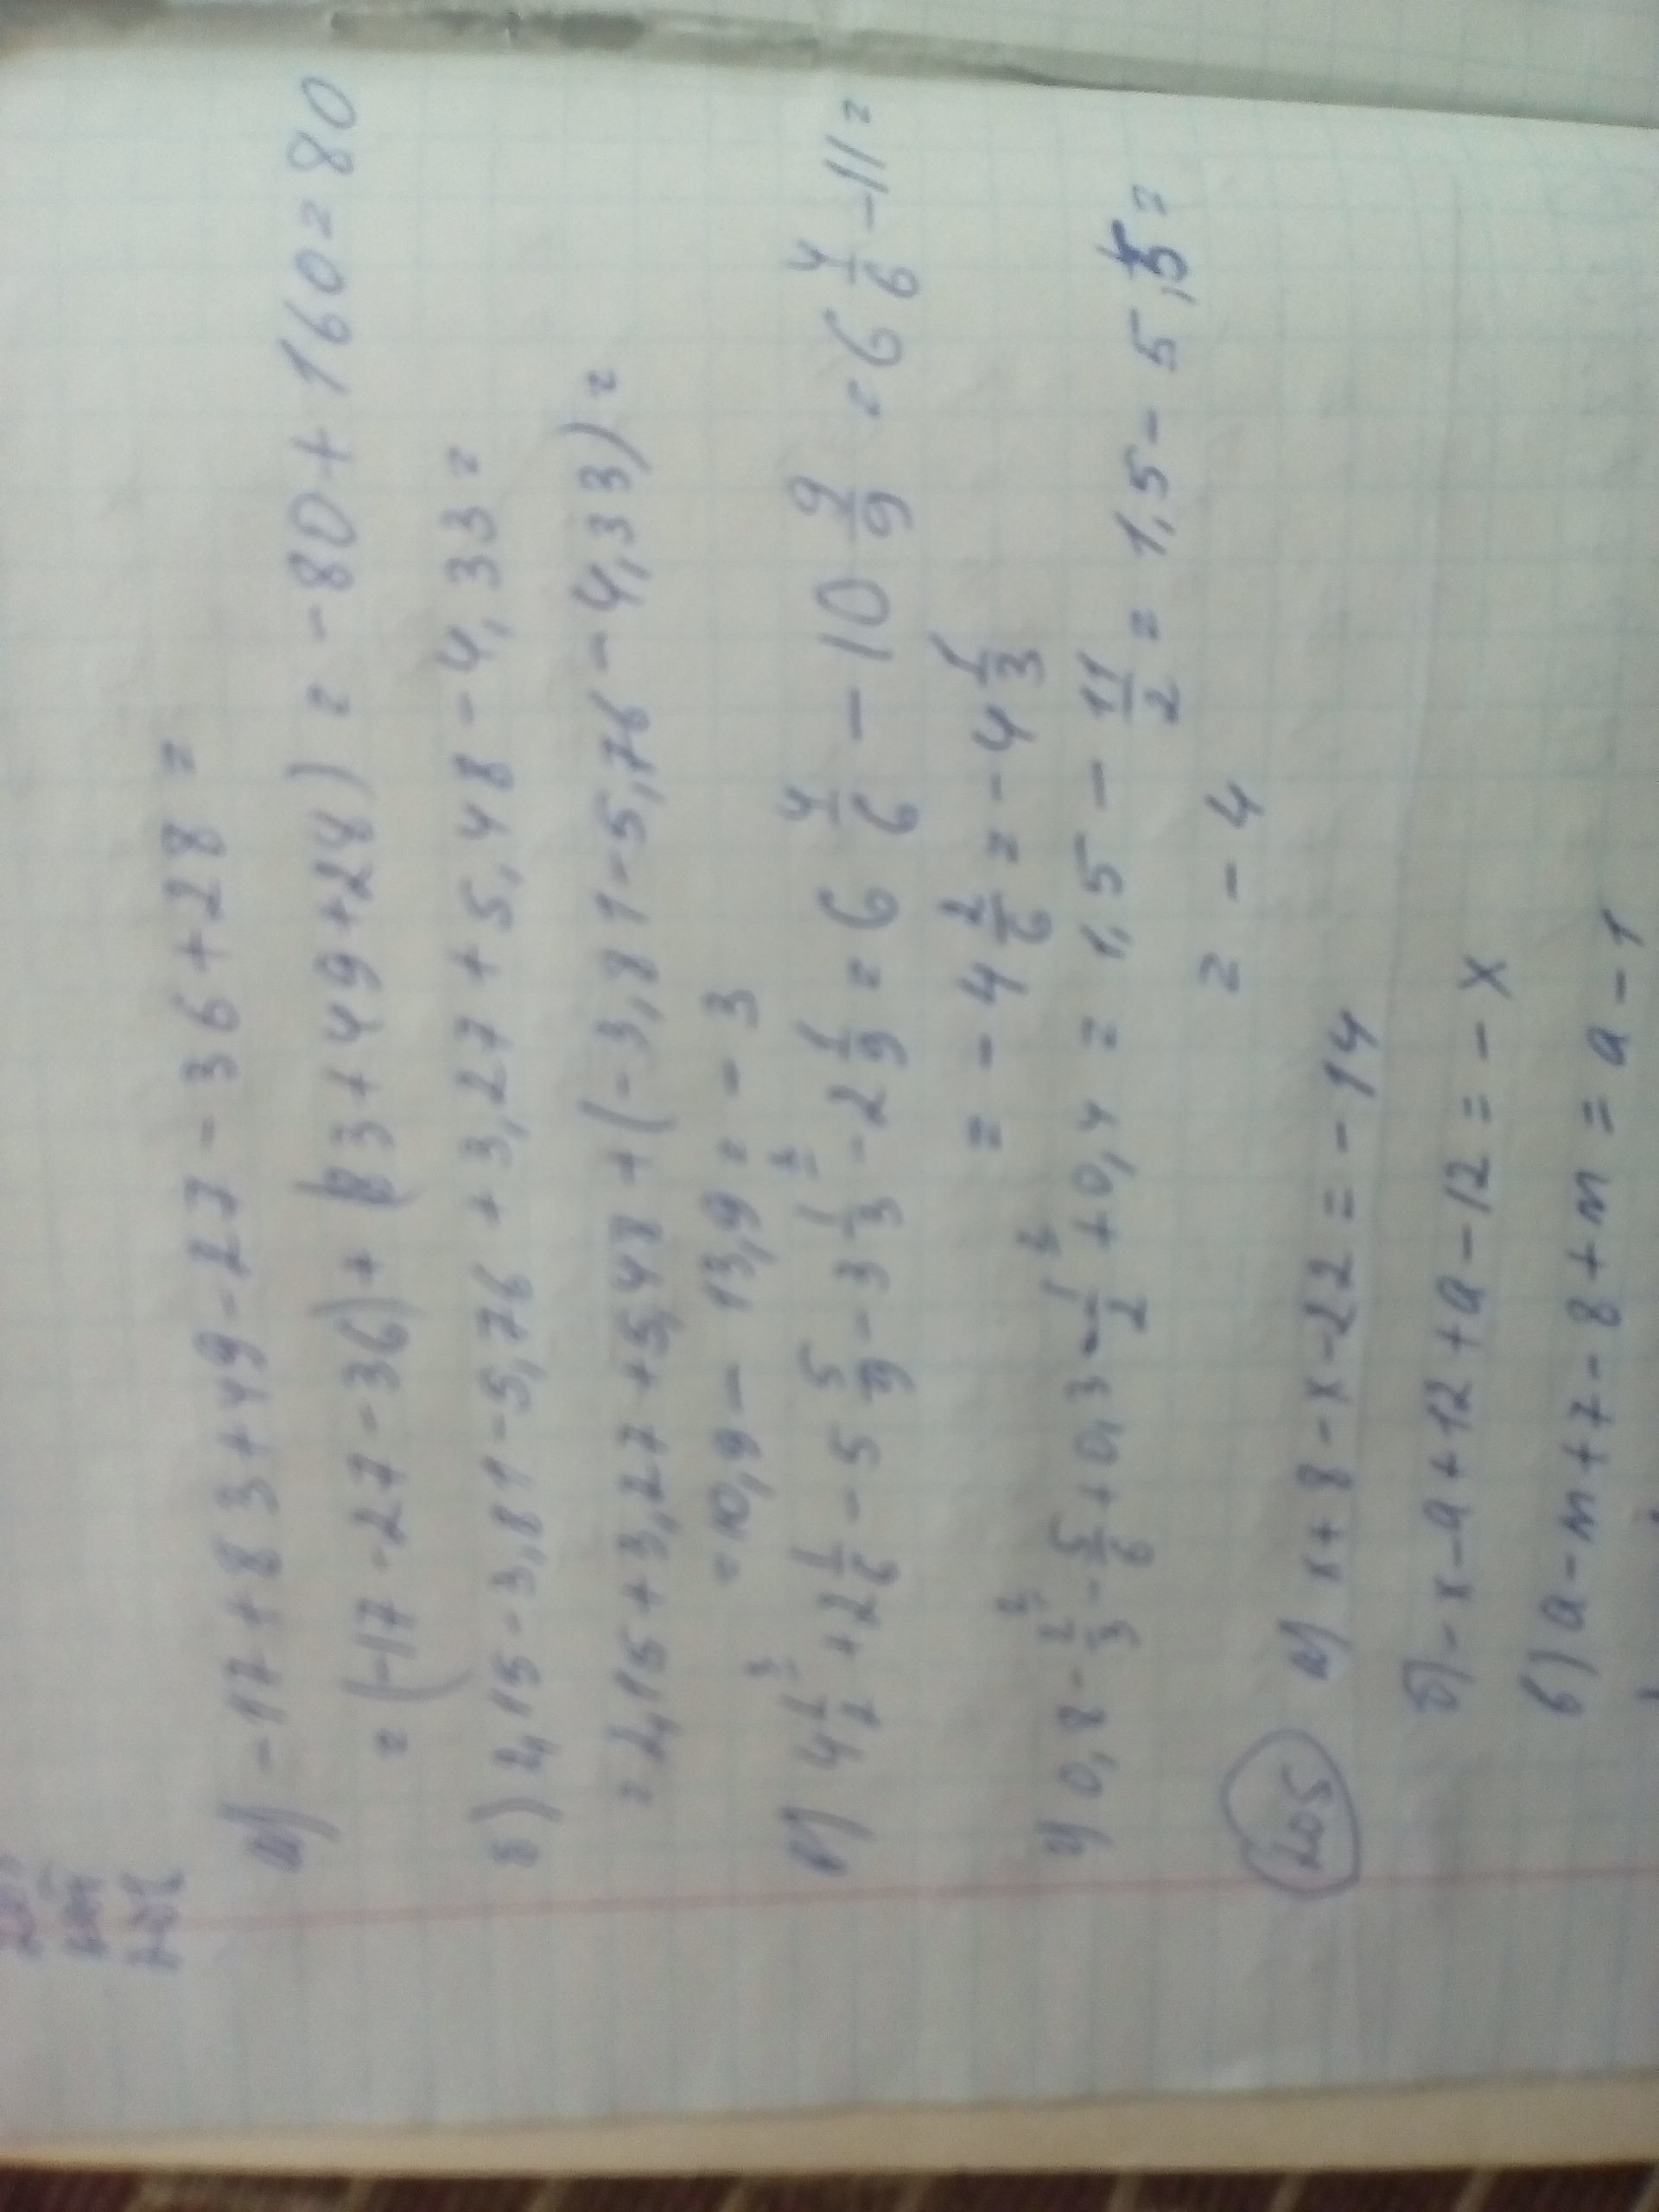 а) -17+83+49-27-36+28=
=(-17-27-36)+(83+49+28)=-80+160=80
б) 2,15-3,81-5,76+3,27+5,48-4,33=
=2,15+3,27+5,48+(-3,81-5,76-4,33)=
=10,9-13,9=-3
в) 4 1/2 +2 1/6 -5 5/9 -3 1/3 -2 1/9 =6 4/6 -10 9/9 =6 4/6 -11=
=-4 2/6 =-4 1/3
г) 0,8- 2/3 - 5/6 +0,3- 1/2 +0,4=1,5- 11/2 =1,5-5,5=
=-4
205 а) x+8-x-22=-14
б) -x-a+12+a-12=-x
в) a-m+7-8+m=a-1